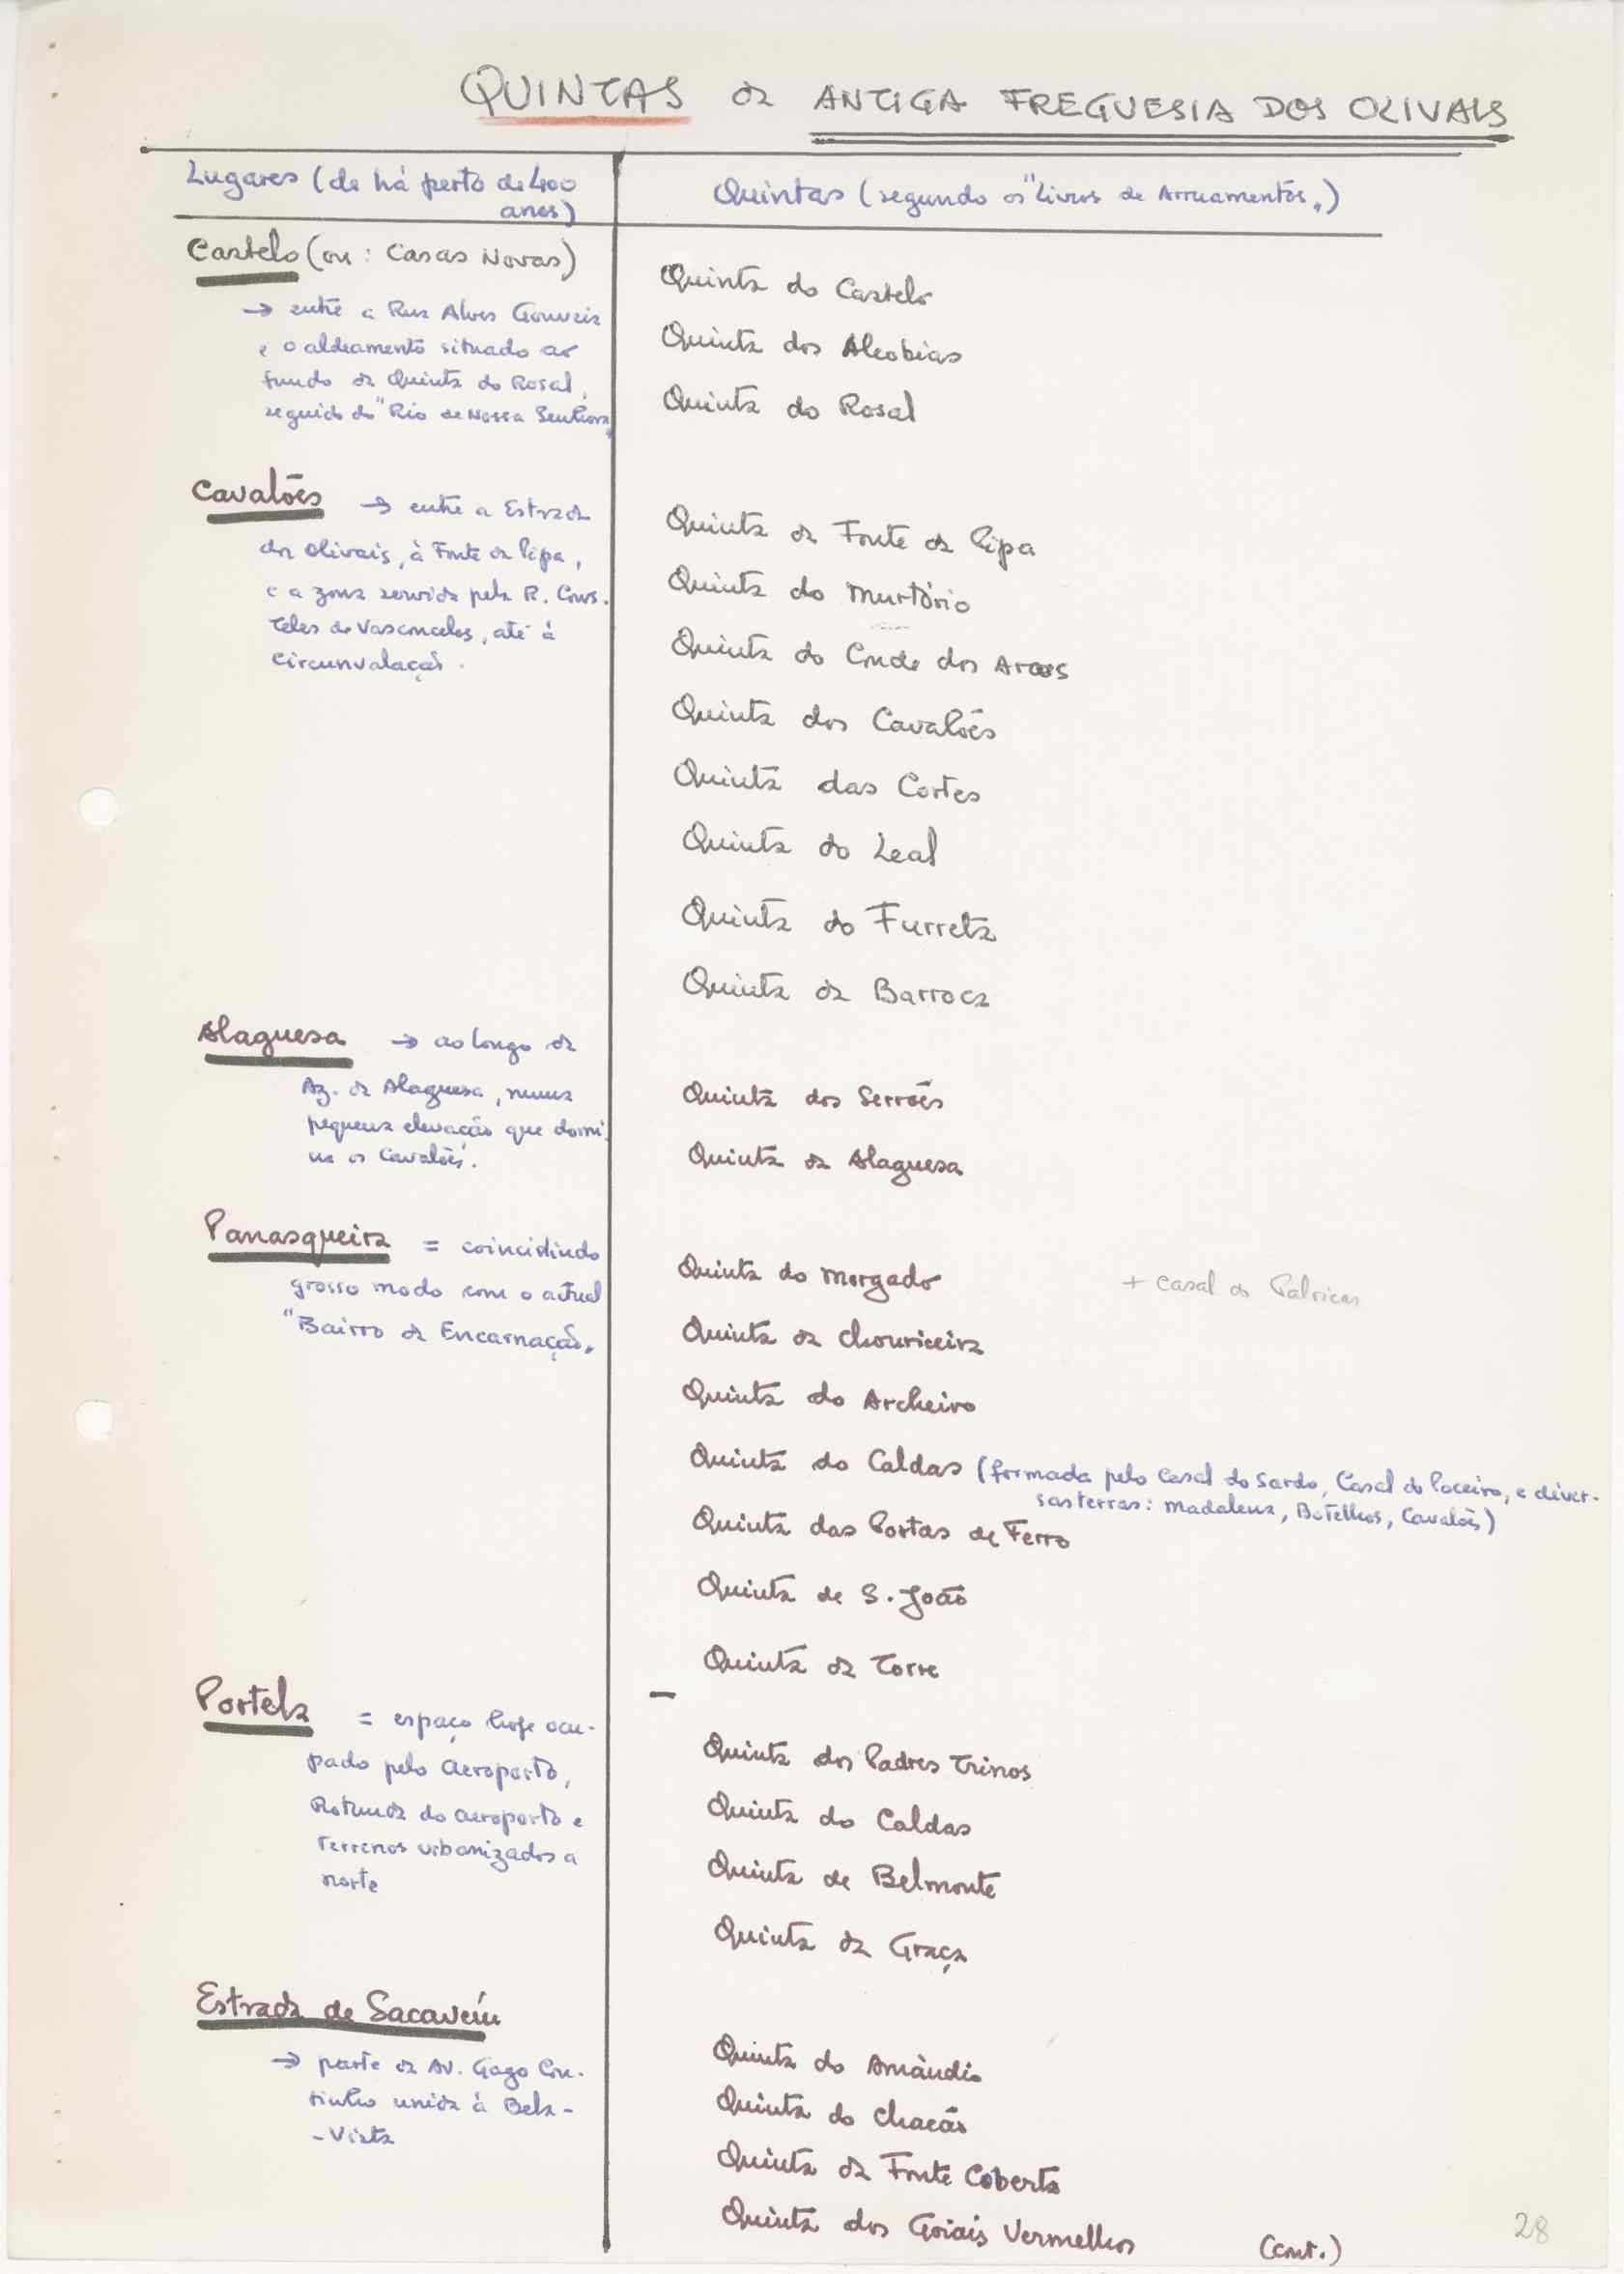 QUINTAS da ANTIGA FREGUESIA DOS OLIVAIS
Lugares (de há perto de 400
anos)
Quintas (segundo os "Livros de Arruamentos")
Castelo (ou: Casas Novas)
→ entre a Rua Alves Gouveia
e o aldeamento situado ao
fundo da Quinta do Rosal,
seguido do "Rio de Nossa Senhora"
Quinta do Castelo
Quinta dos Alcobias
Quinta do Rosal
Cavalões → entre a Estrada
dos Olivais, à Fonte da Pipa,
e a zona servida pela R. Cons.
Teles de Vasconcelos, até à
Circunvalação.
Quinta da Fonte da Pipa
Quinta do Murtório
Quinta do Conde dos Arcos
Quinta dos Cavalões
Quinta das Cortes
Quinta do Leal
Quinta do Furreta
Quinta da Barroca
Alaguesa → ao longo da
Az. da Alaguesa, numa
pequena elevação que domi-
na os Cavalões.
Quinta dos Serrões
Quinta da Alaguesa
Panasqueira = coincidindo
grosso modo com o actual
"Bairro da Encarnação"
Quinta do Morgado + Casal do
Quinta da Chouriceira
Quinta do Archeiro
Quinta do Caldas (formada pelo Casal do Sardo, Casal do Poceiro, e diver-
sas terras: Madalena, Botelhos, Cavalões)
Quinta das Portas de Ferro
Quinta de S. João
Quinta da Torre
Portela = espaço hoje ocu-
pado pelo Aeroporto,
Rotunda do Aeroporto e
terrenos urbanizados a
norte
Quinta dos Padres Trinos
Quinta do Caldas
Quinta de Belmonte
Quinta da Graça
Estrada de Sacavém
→ parte da Av. Gago Cou-
tinho unida à Bela-
-Vista
Quinta do Amândio
Quinta do Chacão
Quinta da Fonte Coberta
Quinta dos Goiais Vermelhos
(cont.)
28